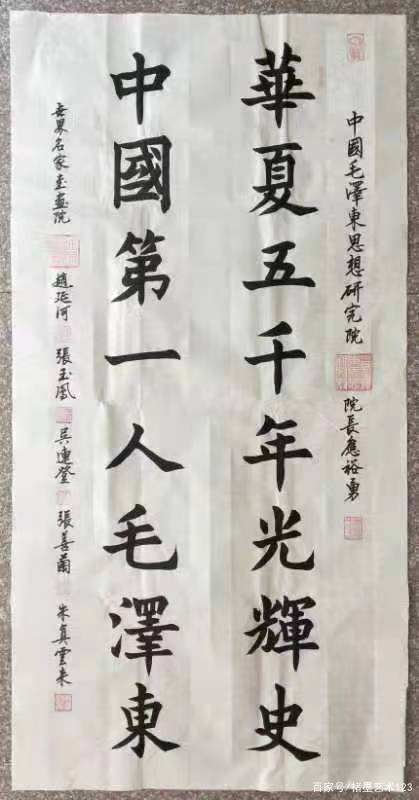 中國毛澤東思想研究院 院長應裕勇
華夏五千年光輝史
中國第一人毛澤東
世界名家書畫院 趙延河 張玉鳳 吳連登 張善蘭 朱真雲来
百家号/楮墨艺术123